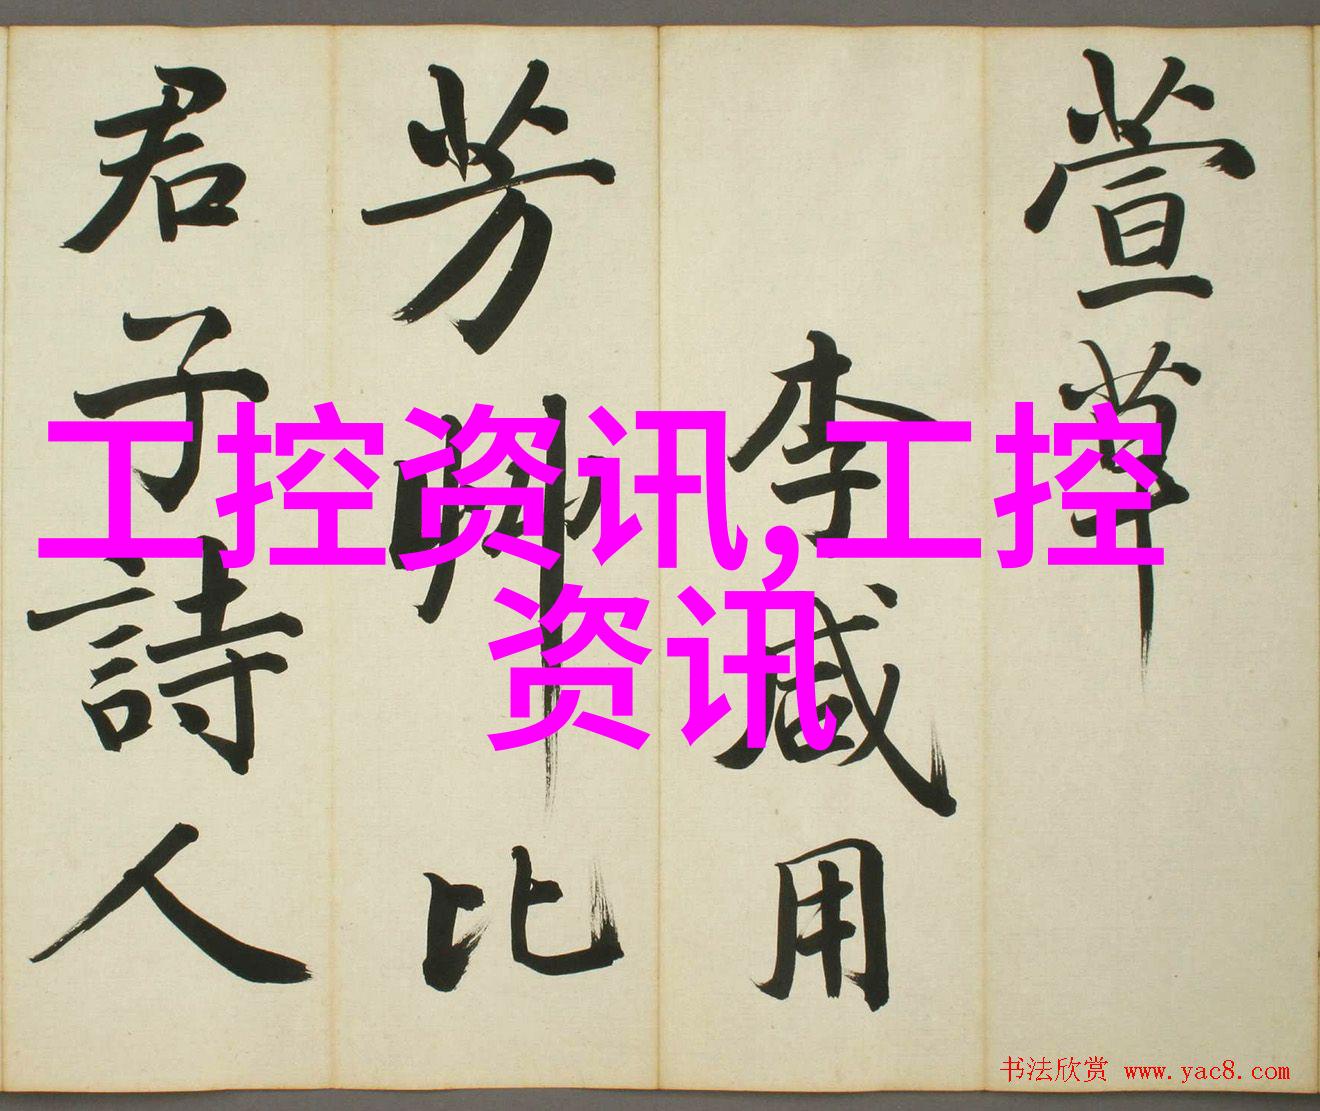 萱草
李咸用
芳草比
君子詩人
工控资讯,工控
资讯
书法欣赏 www.yac8.com